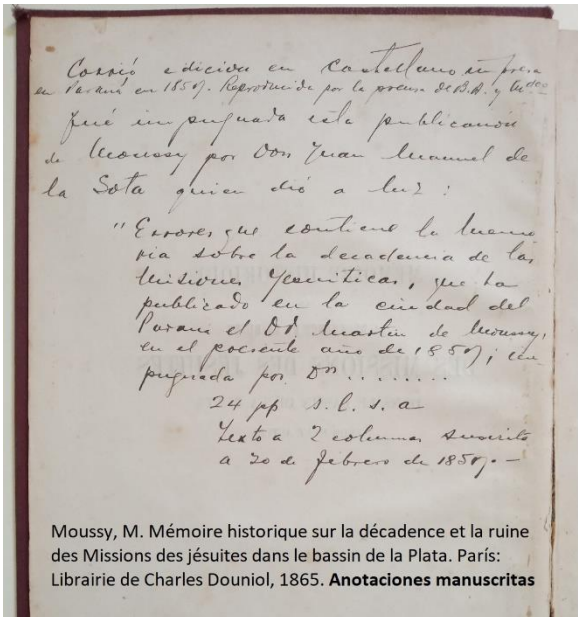 Corrió edicion en castellano impresa
en Paraná en 1857. Reproducida por la prensa de B.A. y Mdeo
Fué impugnada esta publicación
de Moussy por Don Juan Manuel de
la Sota quien dió a luz:
"Errores que contiene la memo
ria sobre la decadencia de las
Misiones Jesuiticas, que ha
publicado en la ciudad del
Paraná el Dr Martin de Moussy,
en el presente año de 1857; im
pugnada por Dn ........
24 pp s. l. s. a
Texto a 2 columnas suscrito
a 20 de febrero de 1857.—
Moussy, M. Mémoire historique sur la décadence et la ruine
des Missions des jésuites dans le bassin de la Plata. París:
Librairie de Charles Douniol, 1865. Anotaciones manuscritas